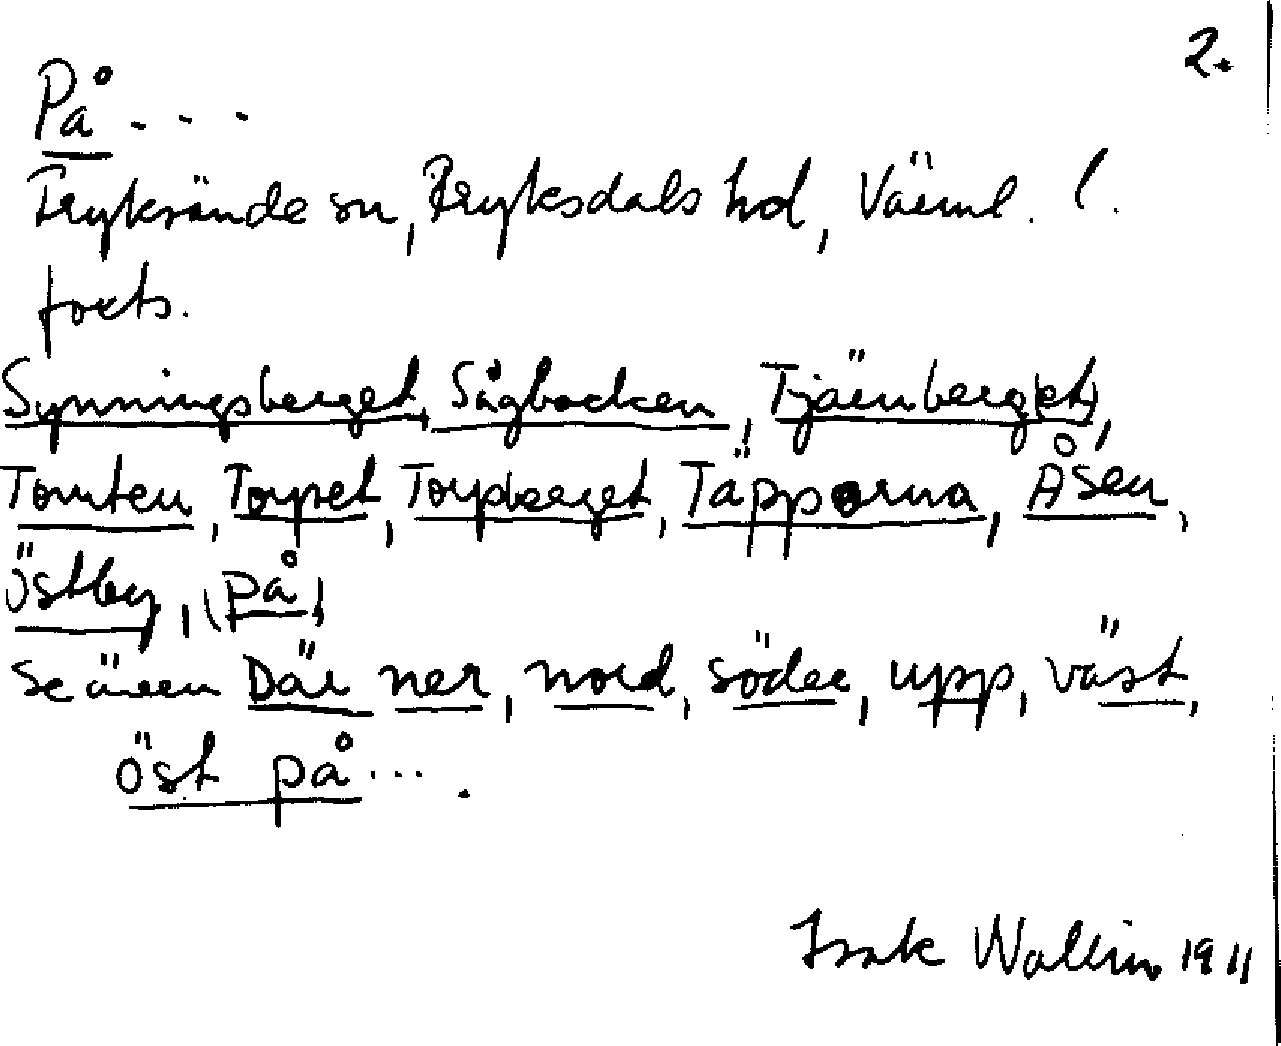 2.
På . . .
Fryksände sn, Fryksdals hd, Värml. l.
forts.
Synningsberget, Sågbocken, Tjärnberg(et),
Tomten, Torpet, Torpberget, Täpporna, Åsen,
Östby, (på)
Se även Där ner, nord, söder, upp, väst,
öst på ... .
Isak Wallin 1911